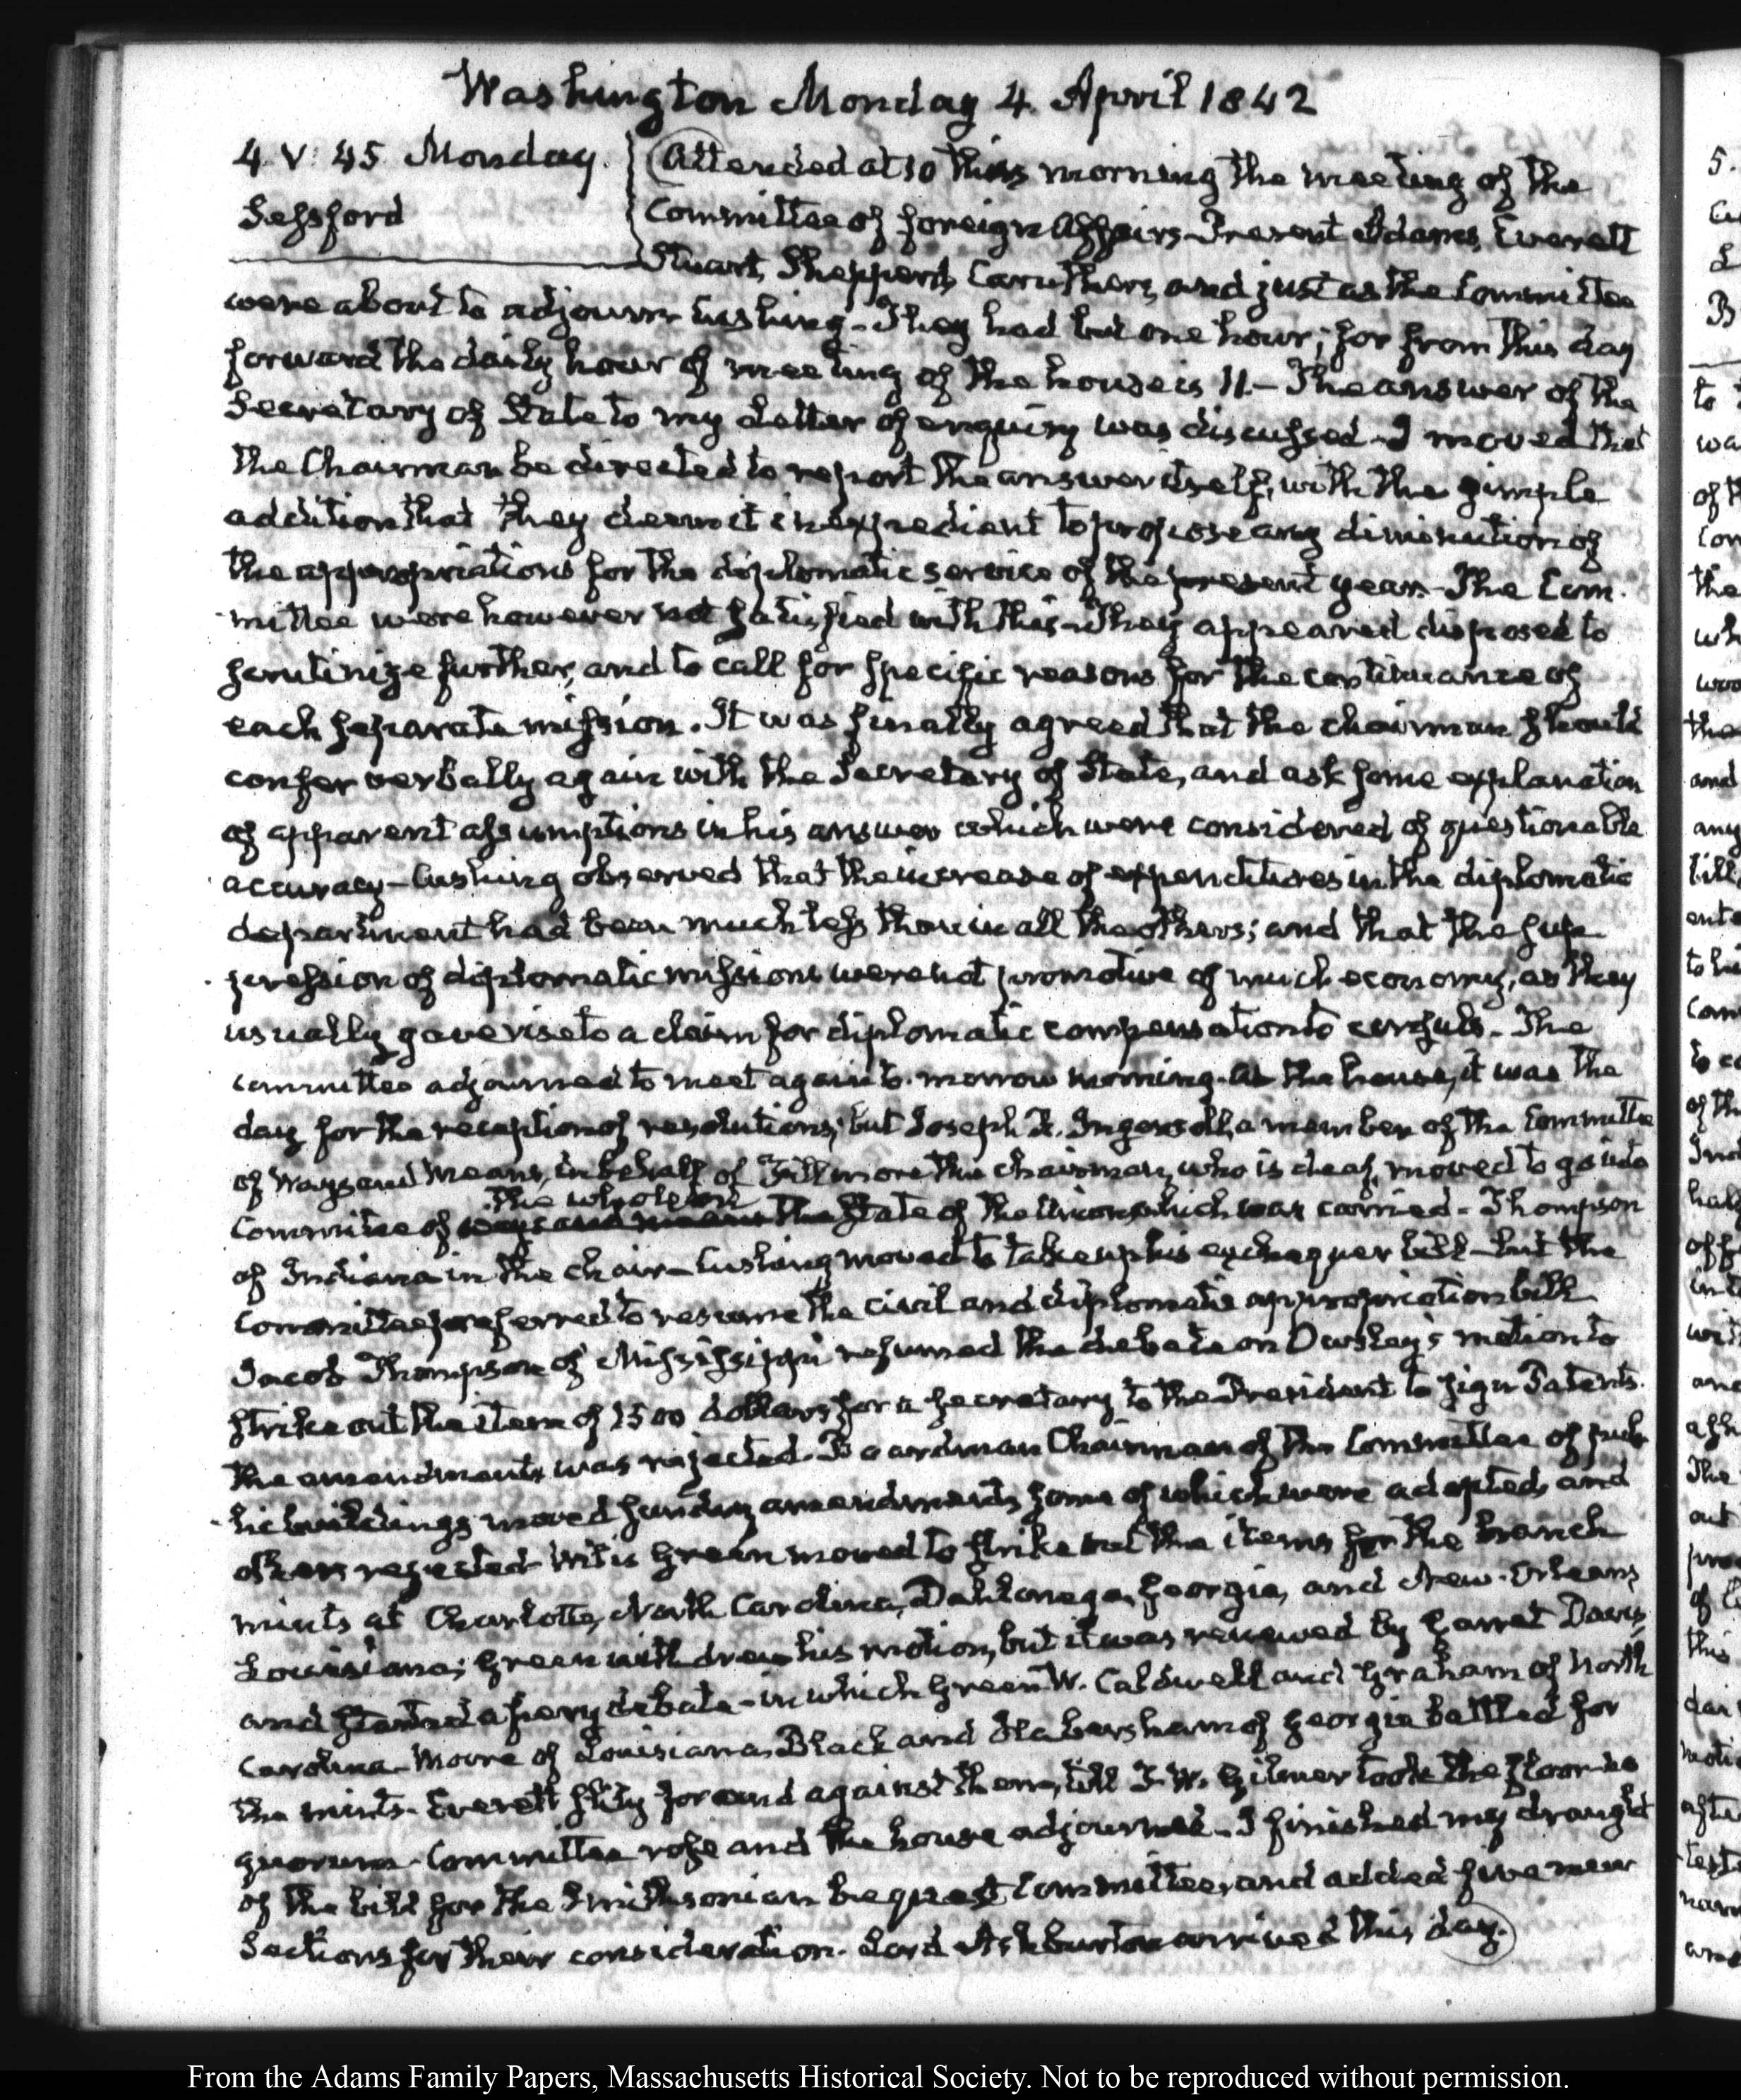 Washington Monday 4. April 1842
4. V: 45. Monday.
Sessford
Attended at 10 this morning the meeting of the
Committee of foreign Affairs. Present Adams, Everett
Stuart, Shepperd, Caruthers, and just as the Committee
were about to adjourn Cushing. They had but one hour; for from this day
forward the daily hour of meeting of the house is 11.— The answer of the
Secretary of State to my Letter of enquiry was discussed. I moved that
the Chairman be directed to report the answer itself, with the simple
addition that they deem it inexpedient to propose any diminution of
the appropriations for the diplomatic service of the present year. The Com-
mittee were however not satisfied with this. They appeared disposed to
scrutinize further, and to call for specific reasons for the continuance of
each separate mission. It was finally agreed that the chairman should
confer verbally again with the Secretary of State, and ask some explanation
of apparent assumptions in his answer which were considered of questionable
accuracy— Cushing observed that the increase of expenditures in the diplomatic
department had been much less than in all the others; and that the sup-
pression of diplomatic missions were not promotive of much economy, as they
usually gave rise to a claim for diplomatic compensation to consuls. The
committee adjourned to meet again to-morrow morning. At the house, it was the
day for the reception of resolutions; but Joseph R. Ingersoll, a member of the Committee
of Ways and Means, in behalf of Fillmore the chairman, who is deaf, moved to go into
the whole on
Committee of ways and means the State of the Union, which was carried. Thompson
of Indiana in the chair— Cushing moved to take up his exchequer bill— but the
Committee preferred to resume the civil and diplomatic appropriation bill
Jacob Thompson of Mississippi resumed the debate on Owsley's motion to
strike out the item of 1500 dollars for a secretary to the President to sign Patents.
the amendment was rejected. Boardman Chairman of the Committee of pub-
lic buildings moved sundry amendments, some of which were adopted, and
others rejected. Willis Green moved to strike out the items for the branch
mints at Charlotte, North Carolina, Dahlonega, Georgia, and New-Orleans,
Louisiana; Green withdrew his motion, but it was renewed by Garret Davis,
and started a fiery debate— in which Green W. Caldwell and Graham of North
Carolina— Moore of Louisiana, Black and Habersham of Georgia battled for
the mints. Everett for and against them, till T. W. Gilmer took the floor no
quorum. Committee rose and the house adjourned— I finished my draught
of the bill for the Smithsonian bequest Committee, and added five new
Sections for their consideration. Lord Ashburton arrived this day.
5.
to
wa
of th
Com
the
wh
woo
the
and
any
bill
ente
to hi
Com
to co
of th
and
ass
The
out
pro
this
dai
moti
afte
nam
From the Adams Family Papers, Massachusetts Historical Society. Not to be reproduced without permission.